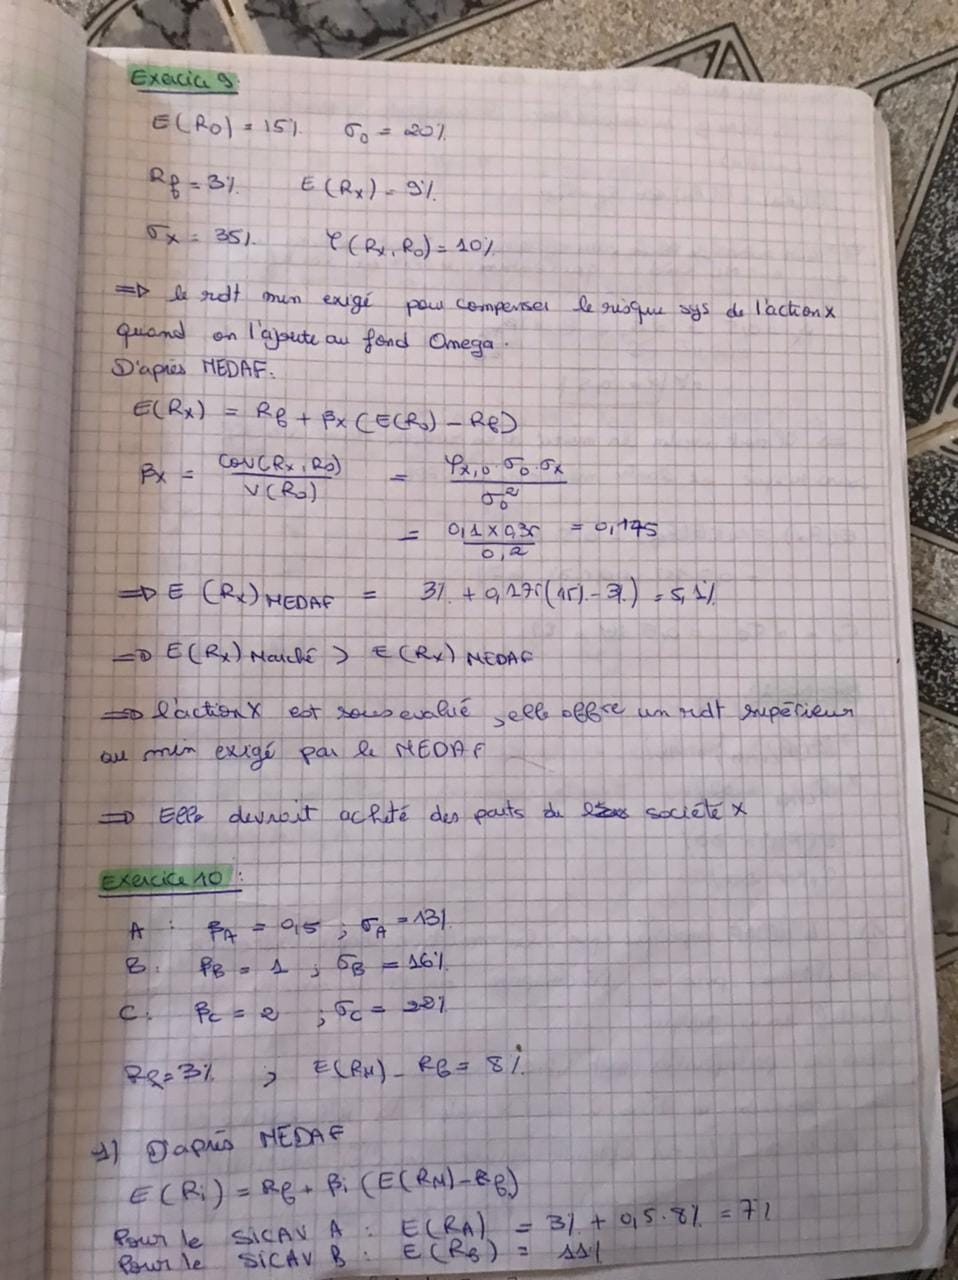 Exercice 9:
E(R₀) = 15% σ₀ = 20%
Rf = 3% E(Rx) = 9%
σx = 35% φ(Rx, R₀) = 10%
⇒ le rdt min exigé pour compenser le risque sys de l'action x
quand on l'ajoute au fond Omega.
D'après MEDAF:
E(Rx) = Rf + βx (E(R₀) - Rf)
βx = cov(Rx, R₀) / V(R₀) = φx,0 · σ₀ · σx / σ₀²
= 0,1 x 0,35 / 0,2 = 0,175
⇒ E (Rx) MEDAF = 3% + 0,175(15% - 3%) = 5,1%
⇒ E(Rx) Marché > E(Rx) MEDAF
⇒ l'action X est sous evalué, elle offre un rdt supérieur
au min exigé par le MEDAF
⇒ Elle devrait achité des parts de société x
Exercice 10:
A : βA = 0,5 ; σA = 13%
B : βB = 1 ; σB = 16%
C : βC = 2 ; σC = 22%
Rf = 3% ; E(RM) - Rf = 8%
1) D'après MEDAF
E(Ri) = Rf + βi (E(RM) - Rf)
Pour le SICAV A : E(RA) = 3% + 0,5 · 8% = 7%
Pour le SICAV B : E(RB) = 11%